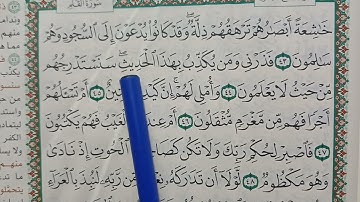 سُورَةُ القَلَمِ
خَٰشِعَةً أَبۡصَٰرُهُمۡ تَرۡهَقُهُمۡ ذِلَّةٞۖ وَقَدۡ كَانُواْ يُدۡعَوۡنَ إِلَى ٱلسُّجُودِ وَهُمۡ
سَٰلِمُونَ ٤٣ فَذَرۡنِي وَمَن يُكَذِّبُ بِهَٰذَا ٱلۡحَدِيثِۖ سَنَسۡتَدۡرِجُهُم
مِّنۡ حَيۡثُ لَا يَعۡلَمُونَ ٤٤ وَأُمۡلِي لَهُمۡۚ إِنَّ كَيۡدِي مَتِينٌ ٤٥ أَمۡ تَسۡـَٔلُهُمۡ
أَجۡرٗا فَهُم مِّن مَّغۡرَمٖ مُّثۡقَلُونَ ٤٦ أَمۡ عِندَهُمُ ٱلۡغَيۡبُ فَهُمۡ يَكۡتُبُونَ
٤٧ فَٱصۡبِرۡ لِحُكۡمِ رَبِّكَ وَلَا تَكُن كَصَاحِبِ ٱلۡحُوتِ إِذۡ نَادَىٰ
وَهُوَ مَكۡظُومٞ ٤٨ لَّوۡلَآ أَن تَدَٰرَكَهُۥ نِعۡمَةٞ مِّن رَّبِّهِۦ لَنُبِذَ بِٱلۡعَرَآءِ